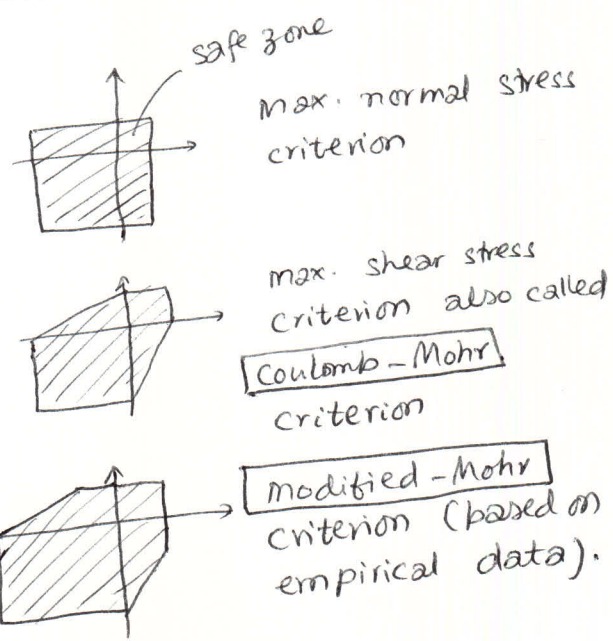 safe zone
max. normal stress
criterion
max. shear stress
criterion also called
Coulomb-Mohr
criterion
modified-Mohr
criterion (based on
empirical data).